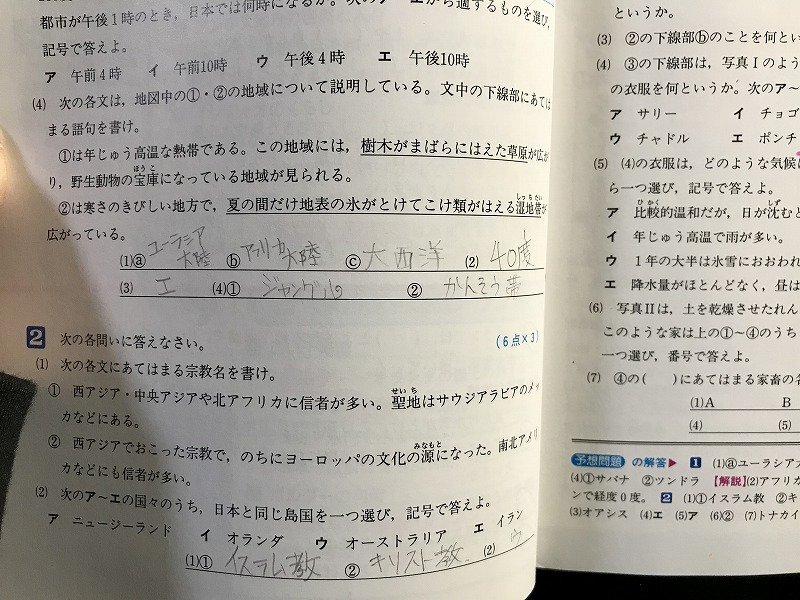 都市が午後1時のとき，日本では何時になるか。次のア〜エから適するものを選び，
記号で答えよ。
ア 午前4時 イ 午前10時 ウ 午後4時 エ 午後10時
(4) 次の各文は，地図中の①・②の地域について説明している。文中の下線部にあては
まる語句を書け。
①は年じゅう高温な熱帯である。この地域には，樹木がまばらにはえた草原が広が
り，野生動物の宝庫になっている地域が見られる。
②は寒さのきびしい地方で，夏の間だけ地表の氷がとけてこけ類がはえる湿地帯が
広がっている。
(1)ⓐ ユーラシア大陸 ⓑ アフリカ大陸 ⓒ 大西洋 (2) 40度
(3) エ (4)① ジャングル ② かんそう帯
2 次の各問いに答えなさい。 (6点×3)
(1) 次の各文にあてはまる宗教名を書け。
① 西アジア・中央アジアや北アフリカに信者が多い。聖地はサウジアラビアのメッ
カなどにある。
② 西アジアでおこった宗教で，のちにヨーロッパの文化の源になった。南北アメリ
カなどにも信者が多い。
(2) 次のア〜エの国々のうち，日本と同じ島国を一つ選び，記号で答えよ。
ア ニュージーランド イ オランダ ウ オーストラリア エ イラン
(1)① イスラム教 ② キリスト教 (2) ウ
というか。
(3) ②の下線部ⓑのことを何とい
(4) ③の下線部は，写真Ⅰのよう
の衣服を何というか。次のア〜
ア サリー イ チョゴ
ウ チャドル エ ポンチ
(5) (4)の衣服は，どのような気候
ら一つ選び，記号で答えよ。
ア 比較的温和だが，日が沈むと
イ 年じゅう高温で雨が多い。
ウ 1年の大半は氷雪におおわれ
エ 降水量がほとんどなく，昼は
(6) 写真Ⅱは，土を乾燥させたれん
このような家は上の①〜④のうち
一つ選び，番号で答えよ。
(7) ④の( )にあてはまる家畜の名
(1)A B
(4) (5)
予想問題 の解答▶ 1 (1)ⓐユーラシア
(4)①サバナ ②ツンドラ 【解説】(2)アフリカ
ンで経度0度。 2 (1)①イスラム教 ②キ
(3)オアシス (4)エ (5)ア (6)② (7)トナカイ